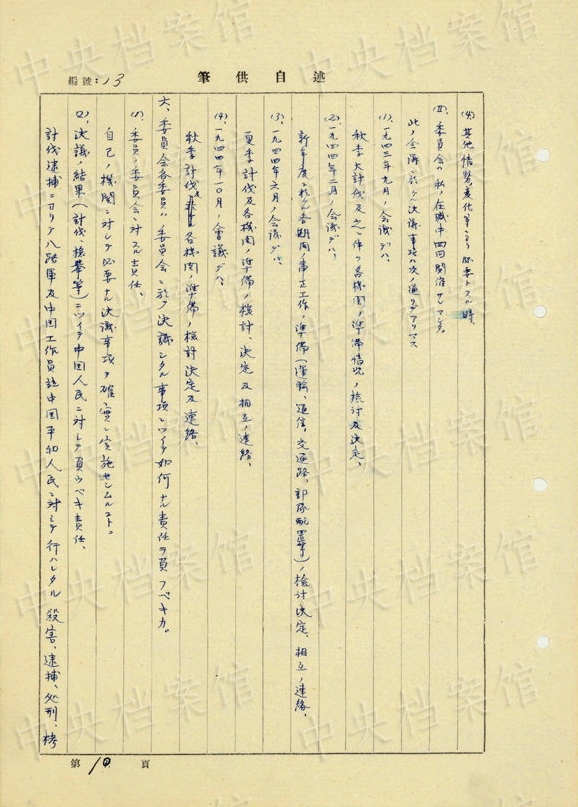 編號:13
筆供述自
(4)、其他情勢変化等ニヨリ必要トスル時、
五、委員会ハ私ノ在職中四回開催サレマシタ。
此ノ会議ニ於ケル決議事項ハ次ノ通リデアリマス
(1)、一九四三年九月ノ会議デハ、
秋季大討伐及之ニ伴フ各機関ノ準備情況ノ検討及決定、
(2)、一九四四年二月ノ会議デハ、
新年度ニ於ケル各期間ノ粛正工作ノ準備(運輸、通信、交通路、部隊配置等)ノ検討決定、相互ノ連絡、
(3)、一九四四年六月ノ会議デハ、
夏季討伐及各機関ノ準備ノ検討、決定及相互ノ連絡、
(4)、一九四四年一〇月ノ會議デハ
秋季討伐及各機関ノ準備ノ検討決定及連絡、
六、委員会各委員ハ委員会ニ於テ決議シタル事項ニツイテ如何ナル責任ヲ負フベキカ。
(1)、委員ノ委員会ニ対スル責任、
自己ノ機関ニ対シテ必要ナ決議事項ヲ確実ニ実施セシムルコト。
(2)、決議ノ結果(討伐、検挙等)ニツイテ中国人民ニ対シテ負フベキ責任、
討伐逮捕ニヨリテ八路軍及中国工作員並中国平和人民ニ対シテ行ハレタル殺害、逮捕、処刑、拷
第10頁
中央档案馆